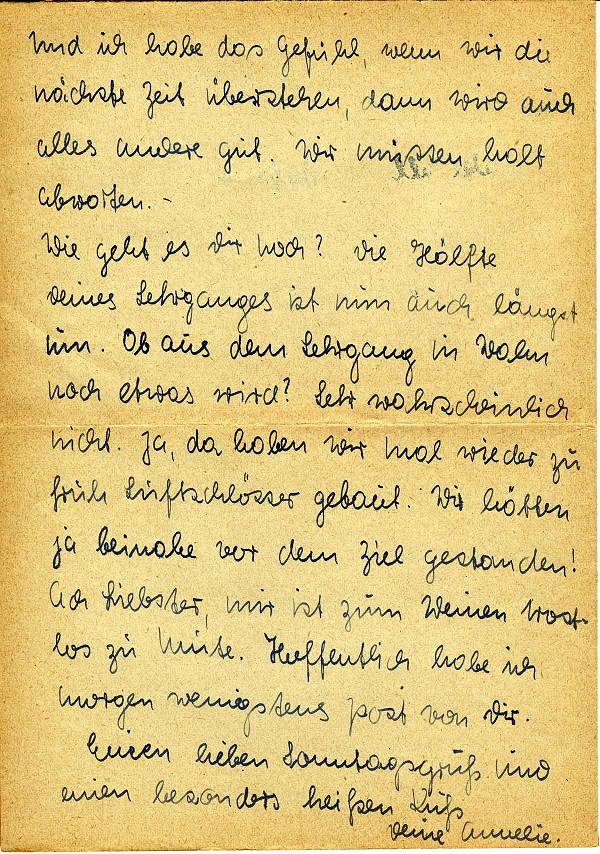 Und ich habe das Gefühl, wenn wir die
nächste Zeit überstehen, dann wird auch
alles andere gut. Wir müssen halt
abwarten. -
Wie geht es dir noch? Die Hälfte
deines Lehrganges ist nun auch längst
um. Ob aus dem Lehrgang in
noch etwas wird? Sehr wahrscheinlich
nicht. Ja, da haben wir mal wieder zu
früh Luftschlösser gebaut. Wir hätten
ja beinahe vor dem Ziel gestanden!
Ach Liebster, mir ist zum Weinen trost-
los zu Mute. Hoffentlich habe ich
morgen wenigstens Post von Dir.
Einen lieben Sonntagsgruß und
einen besonders heißen Kuß
deine Annelie.